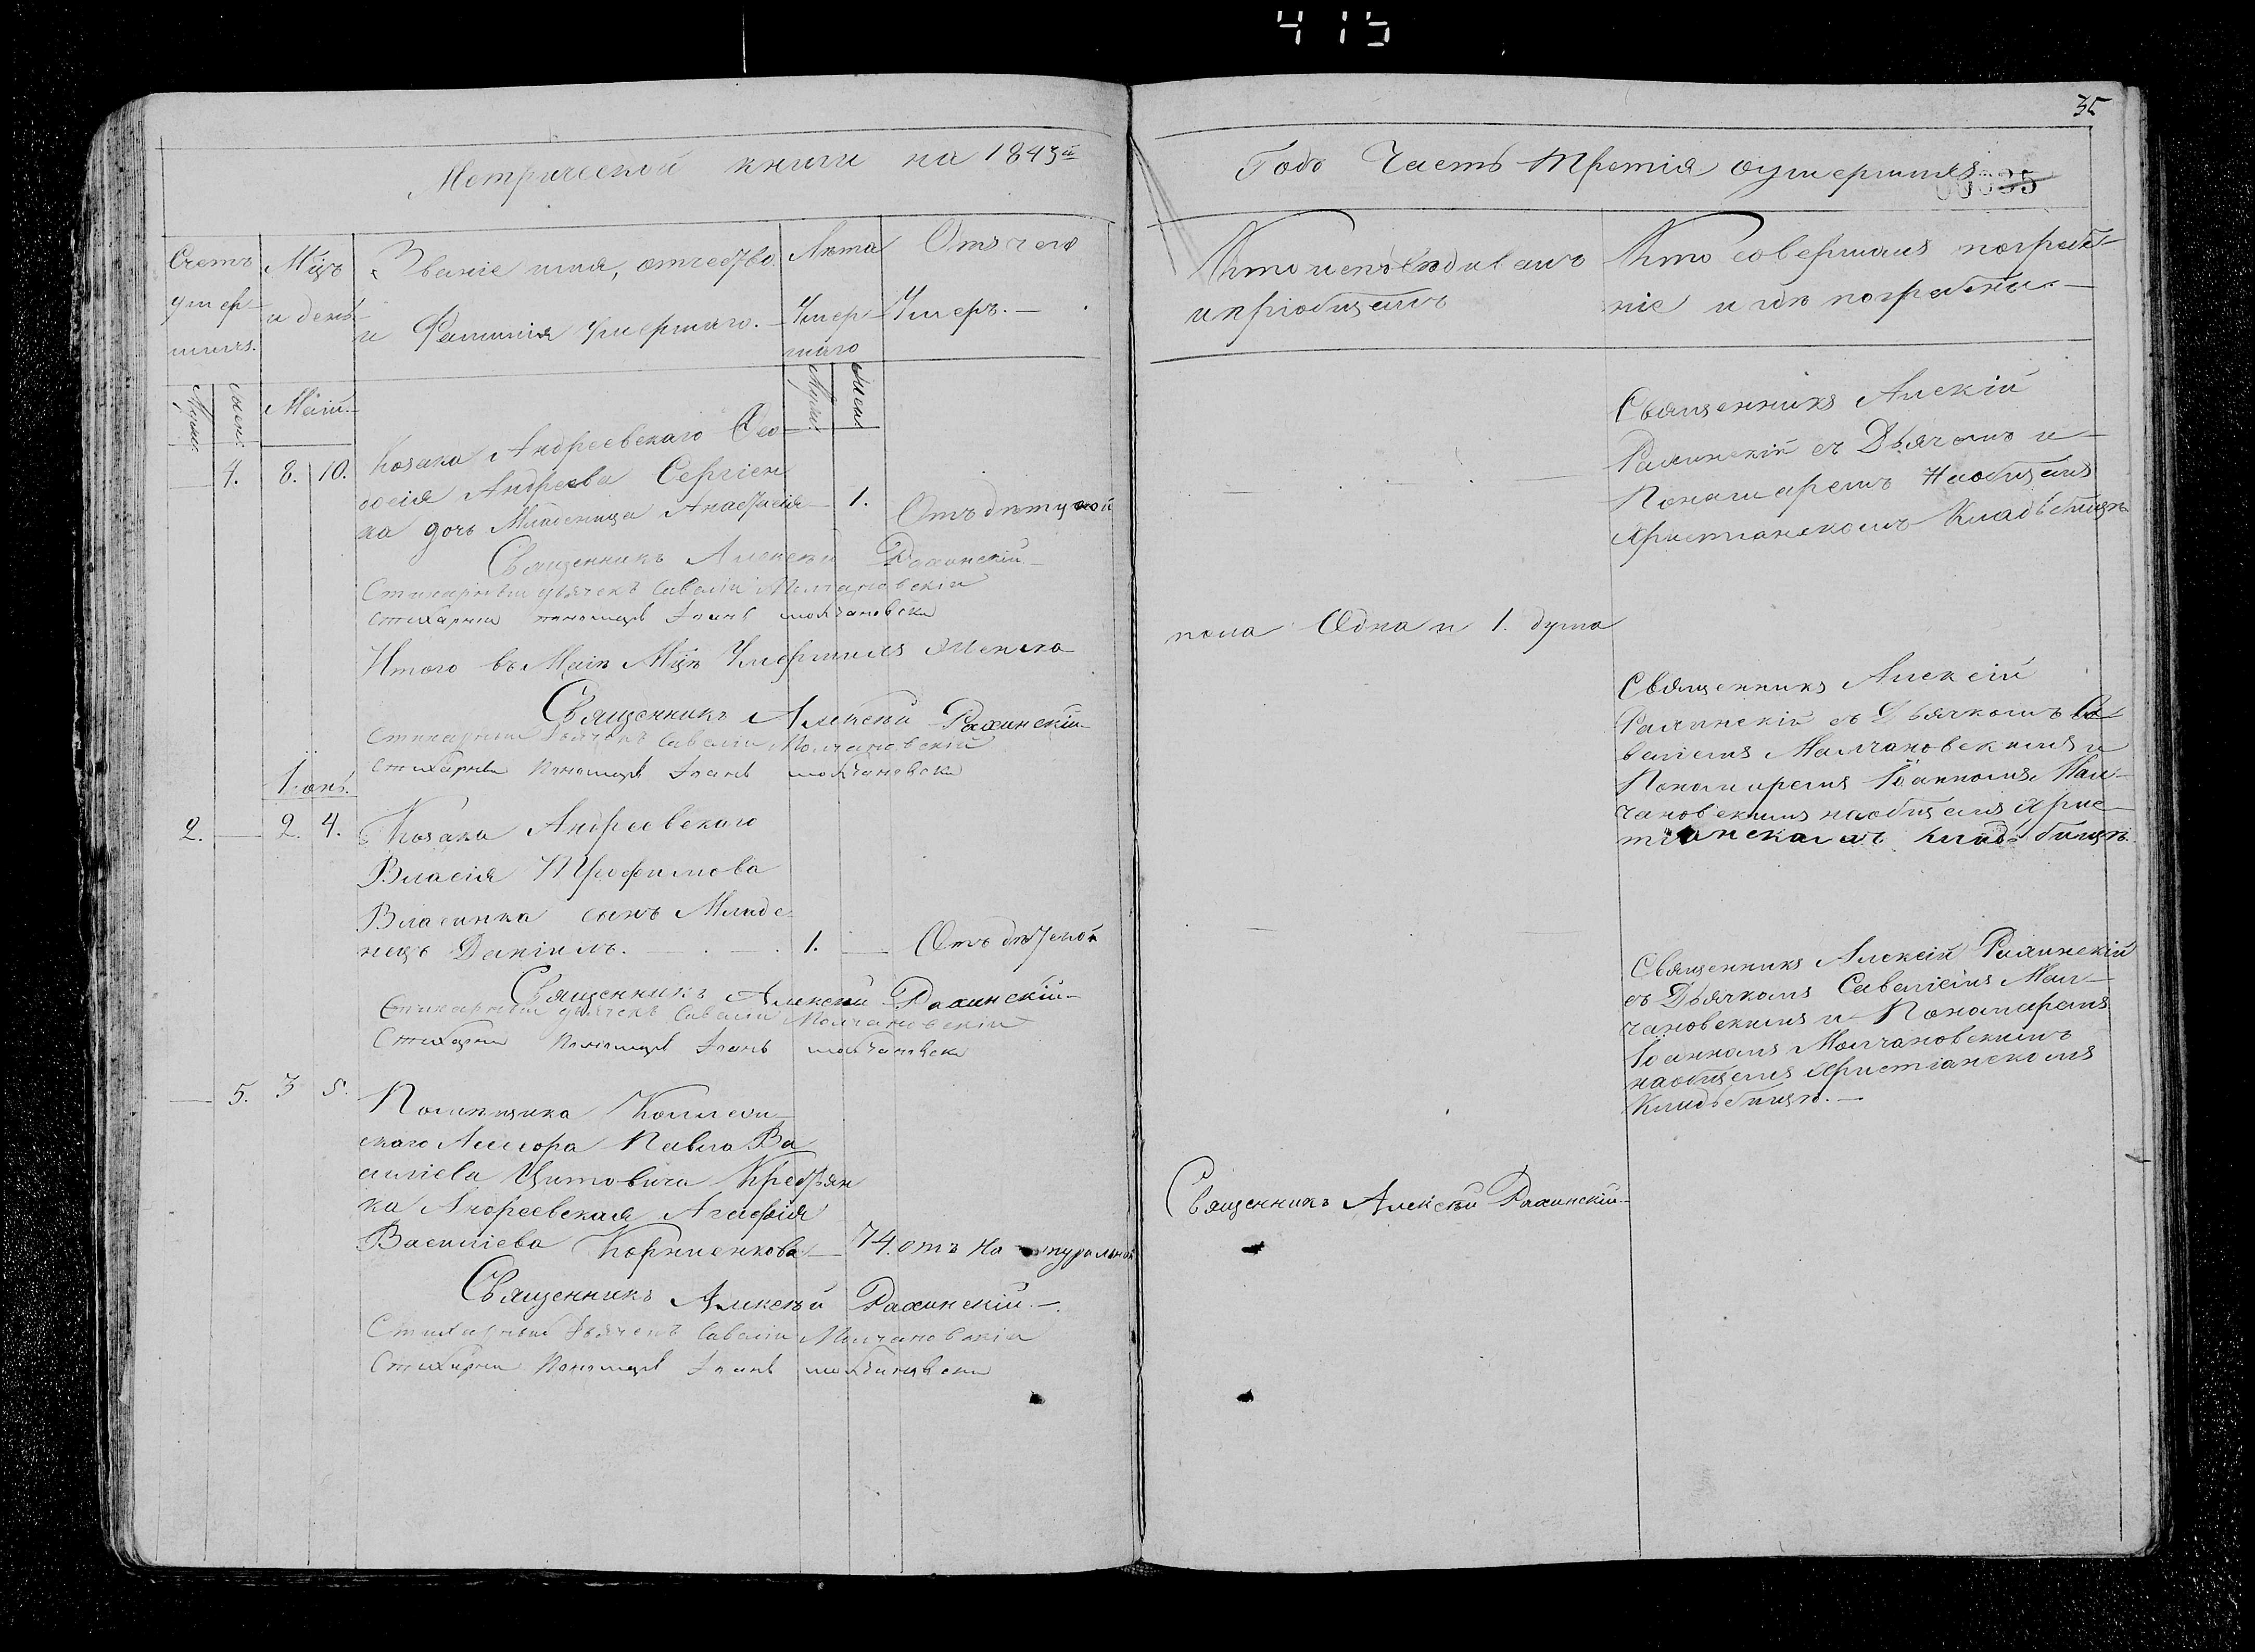 415
35
Метрической книги на 1843й
Годъ Часть третія оумершихъ
00035
Счетъ умер-шихъ.
Мцъ и день
Званіе имя, отчество
и Фамилія Умершаго.
Лѣта Умер-шаго
Отъ чего
Умеръ.
Кто исповѣдывалъ
и пріобщалъ
Кто совершалъ погребе-
ніе и гдѣ погребены.
Мужес.
Женс.
Маій.
Мужес.
Женс.
4. 8. 10.
Козака Андреевскаго Ѳео-
досія Андреева Сергіен
ка дочь Младеница Анастасія 1. Отъ дѣтской
Священникъ Алексѣй Рахинскій
Стихарный дьячекъ Савелій Молчановскій
Стихарный пономаръ Іоанъ молчановски
Священникъ Алексій
Рахинскій съ Дьячемъ и
Понамаремъ На общемъ
Христианскомъ Кладьбищѣ
Итого въ Маіѣ Мцѣ Умершихъ Женска
пола Одна и 1. душа
Священникъ Алексѣй Рахинскій
Стихарный дьячекъ Савелій Молчановскій
Стихарны Пономаръ Іоанъ молчановски
Іюнь.
2. 2. 4.
Козака Андреевскаго
Власія Трофимова
Власинка сынъ Младе-
нецъ Даніилъ. 1. Отъ дѣтской
Священникъ Алексѣй Рахинскій
Стихарный дьячекъ Савелій Молчановскій
Стихарны Пономаръ Іоанъ молчановски
Священникъ Алексій
Рахинскій съ Дьячкомъ Са-
веліемъ Малчановскимъ и
Понамаремъ Іоанномъ Мал-
чановскимъ на общемъ Хрис-
тіанскомъ кладьбищѣ.
5. 3 5.
Помѣщика Коллежс-
скаго Ассесора Павла Ва
силіева Цитовича Крестьян
ка Андреевская Агафія
Василіева Корніенкова 74. отъ Натуральной
Священникъ Алексѣй Рахинскій.
Стихарный дьячекъ Савелій Молчановскій
Стихарны Пономаръ Іоанъ молчановски
Священникъ Алексѣй Рахинскій
Священникъ Алексій Рахинскій
съ Дьячкомъ Савеліемъ Мал-
чановскимъ и Понамаремъ
Іоанномъ Молчановскимъ
на общемъ Христіанскомъ
Кладьбищѣ.